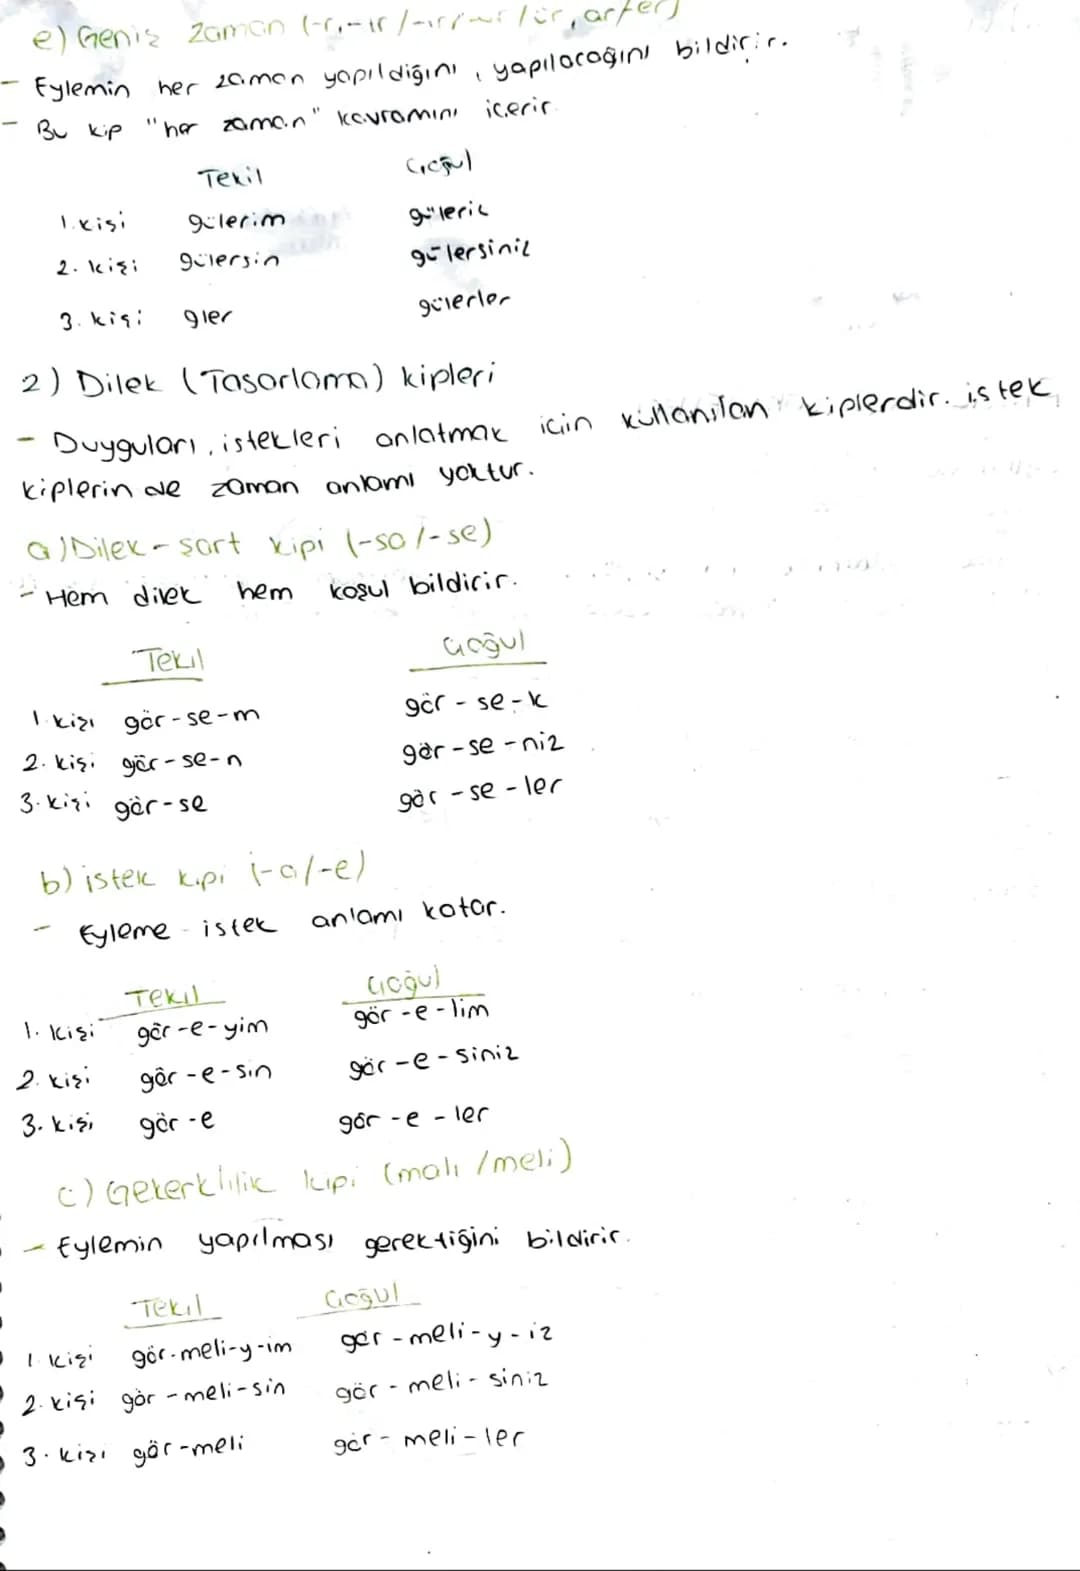 e) Geniz zaman (-r,-ır/-ir/-ur/ür, ar/er)
- Eylemin her zaman yapıldığını, yapılacağını bildirir.
- Bu kip "her zaman" kavramını içerir.
Tekil Çoğul
1. kişi gülerim güleriz
2. kişi gülersin gülersiniz
3. kişi gler gülerler
2) Dilek (Tasarlama) kipleri
- Duyguları, istekleri anlatmak için kullanılan kiplerdir. istek
kiplerin de zaman anlamı yoktur.
a) Dilek - şart kipi (-sa/-se)
- Hem dilek hem koşul bildirir.
Tekil Çoğul
1. kişi gör-se-m gör-se-k
2. kişi gör-se-n gör-se-niz
3. kişi gör-se gör-se-ler
b) istek kipi (-a/-e)
- Eyleme istek anlamı katar.
Tekil Çoğul
1. kişi gör-e-yim gör-e-lim
2. kişi gör-e-sin gör-e-siniz
3. kişi gör-e gör-e-ler
c) Gekerklilik kipi (malı/meli)
- Eylemin yapılması gerektiğini bildirir.
Tekil Çoğul
1. kişi gör-meli-y-im gör-meli-y-iz
2. kişi gör-meli-sin gör-meli-siniz
3. kişi gör-meli gör-meli-ler